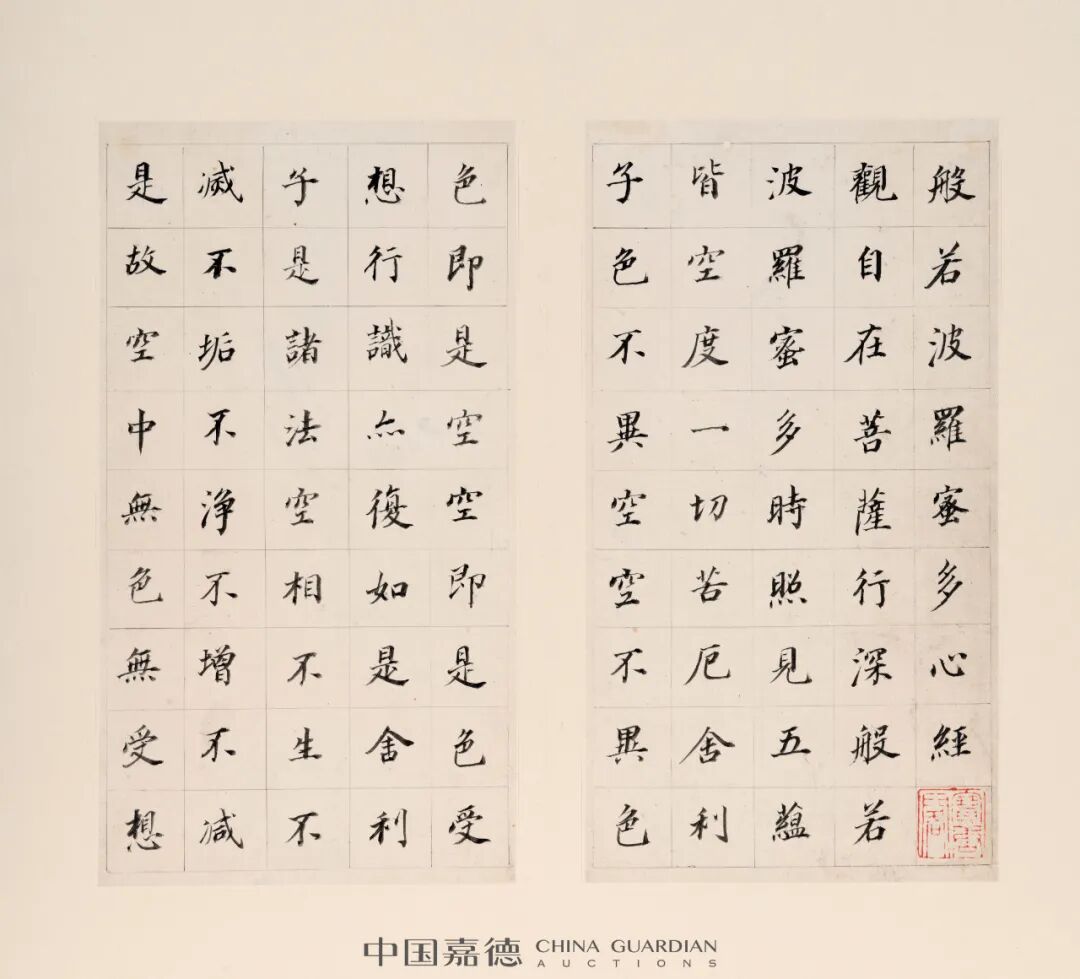 般若波羅蜜多心經
觀自在菩薩行深般若
波羅蜜多時照見五蘊
皆空度一切苦厄舍利
子色不異空空不異色
色即是空空即是色受
想行識亦復如是舍利
子是諸法空相不生不
滅不垢不淨不增不減
是故空中無色無受想
中国嘉德 CHINA GUARDIAN
AUCTIONS